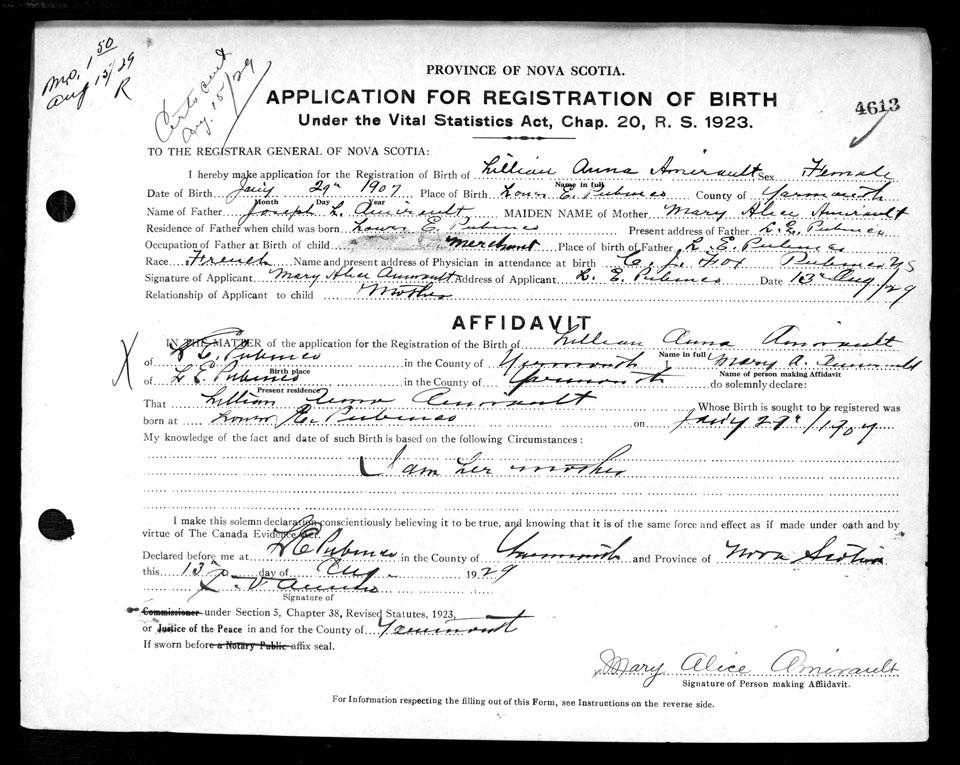 mo. 1 50
Aug 15/29
R
Certs out
Aug. 15/29
4613
PROVINCE OF NOVA SCOTIA.
APPLICATION FOR REGISTRATION OF BIRTH
Under the Vital Statistics Act, Chap. 20, R. S. 1923.
TO THE REGISTRAR GENERAL OF NOVA SCOTIA:
I hereby make application for the Registration of Birth of Lillian Anna Amirault Sex Female
Name in full
Date of Birth Jany 29th 1907 Place of Birth Lower E. Pubnico County of Yarmouth
Month Day Year
Name of Father Joseph L. Amirault MAIDEN NAME of Mother Mary Alice Amirault
Residence of Father when child was born Lower E. Pubnico Present address of Father L. E. Pubnico
Occupation of Father at Birth of child Merchant Place of birth of Father L. E. Pubnico
Race French Name and present address of Physician in attendance at birth C. J. Fox Pubnico NS
Signature of Applicant Mary Alice Amirault Address of Applicant L. E. Pubnico Date 13th Aug/29
Relationship of Applicant to child Mother
AFFIDAVIT
IN THE MATTER of the application for the Registration of the Birth of Lillian Anna Amirault
Name in full
X of L E. Pubnico in the County of Yarmouth Mary A. Amirault
Birth place Name of person making Affidavit
of L E Pubnico in the County of Yarmouth do solemnly declare:
Present residence
That Lillian Anna Amirault Whose Birth is sought to be registered was
born at Lower E. Pubnico on Jany 29th/1907
My knowledge of the fact and date of such Birth is based on the following Circumstances:
I am her mother
I make this solemn declaration conscientiously believing it to be true, and knowing that it is of the same force and effect as if made under oath and by
virtue of The Canada Evidence Act.
Declared before me at L E Pubnico in the County of Yarmouth and Province of Nova Scotia
this 13th day of Aug. 1929
Signature of
Commissioner under Section 5, Chapter 38, Revised Statutes, 1923,
or Justice of the Peace in and for the County of Yarmouth
If sworn before a Notary Public affix seal.
Mary Alice Amirault
Signature of Person making Affiidavit.
For Information respecting the filling out of this Form, see Instructions on the reverse side.